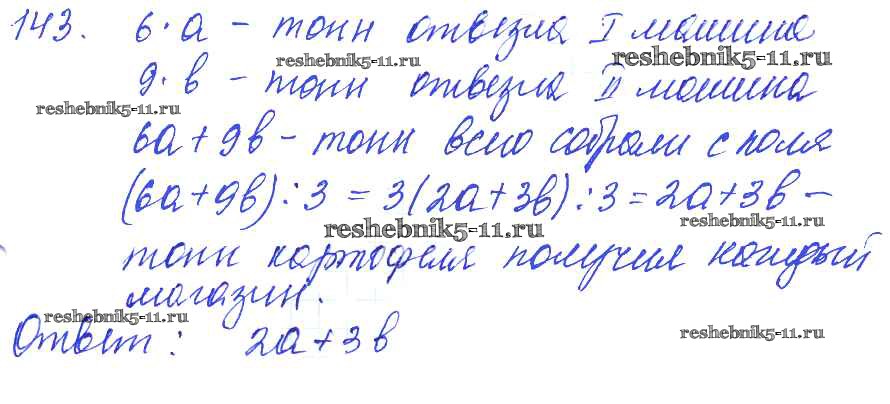 143. 6·a – тонн отвезла I машина
reshebnik5-11.ru
reshebnik5-11.ru
9·в – тонн отвезла II машина
reshebnik5-11.ru
6a+9в – тонн всего собрали с поля
(6a+9в):3 = 3(2a+3в):3 = 2a+3в –
reshebnik5-11.ru
reshebnik5-11.ru
тонн картофеля получил каждый
магазин.
reshebnik5-11.ru
Ответ: 2a+3в
reshebnik5-11.ru